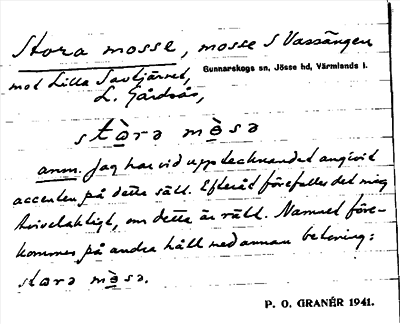 Stora mosse, mosse S Vassängen
mot Lilla Savtjärnet, Gunnarskogs sn, Jösse hd, Värmlands l.
L. Gårdsås,
stɑ̀rə mɞ̀sə
anm. Jag har vid upptecknandet angivit
accenten på detta sätt. Efteråt förefaller det mig
tvivelaktigt, om detta är rätt. Namnet före-
kommer på andra håll med annan betoning:
stɑrə mɞ̀sə.
P. O. GRANÉR 1941.